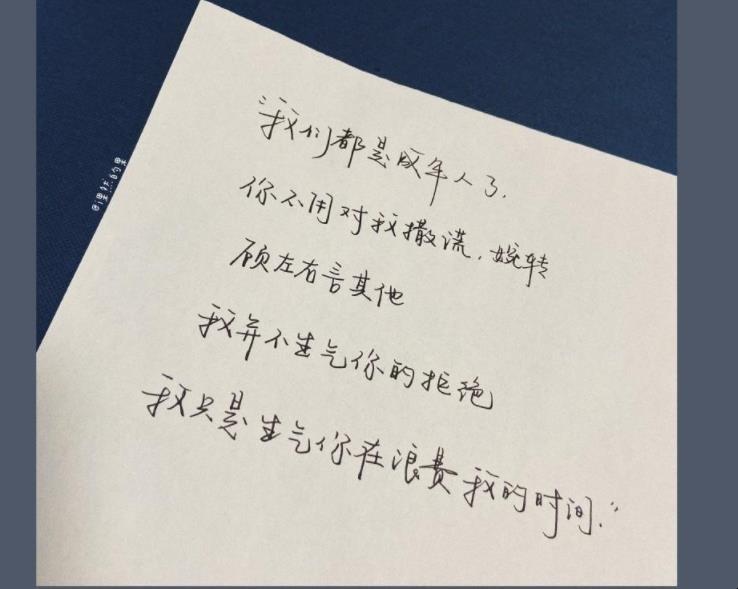 “我们都是成年人了.
你不用对我撒谎.婉转
顾左右言其他
我并不生气你的拒绝
我只是生气你在浪费我的时间.”
@里然的里